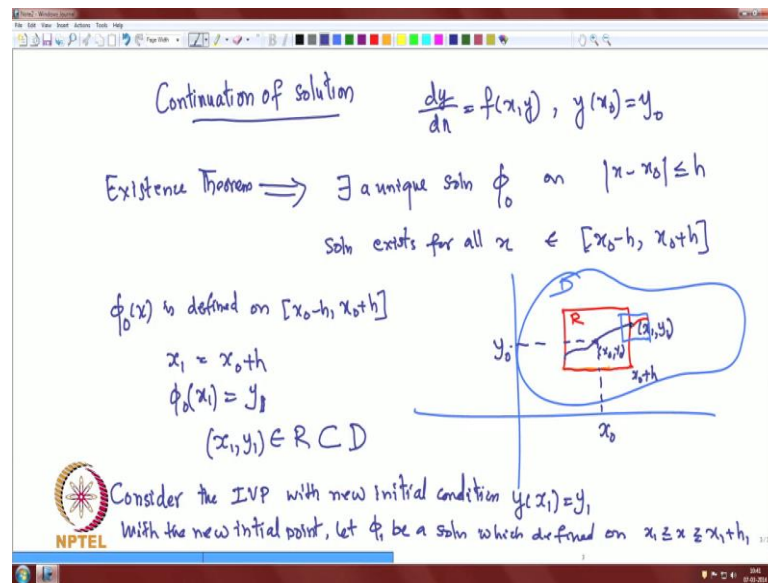 Note2 - Windows Journal
File Edit View Insert Actions Tools Help
Page Width
Continuation of solution dy/dx = f(x,y), y(x₀)=y₀
Existence Theorem ⟹ ∃ a unique soln ϕ₀ on |x-x₀| ≤ h
soln exists for all x ∈ [x₀-h, x₀+h]
ϕ₀(x) is defined on [x₀-h, x₀+h]
x₁ = x₀+h
ϕ₀(x₁) = y₁
(x₁,y₁) ∈ R ⊂ D
D
R
(x₁,y₁)
y₀
(x₀,y₀)
x₀+h
x₀
Consider the IVP with new initial condition y(x₁)=y₁
With the new intial point, let ϕ₁ be a soln which defined on x₁ ≤ x ≤ x₁+h₁
NPTEL
10:41